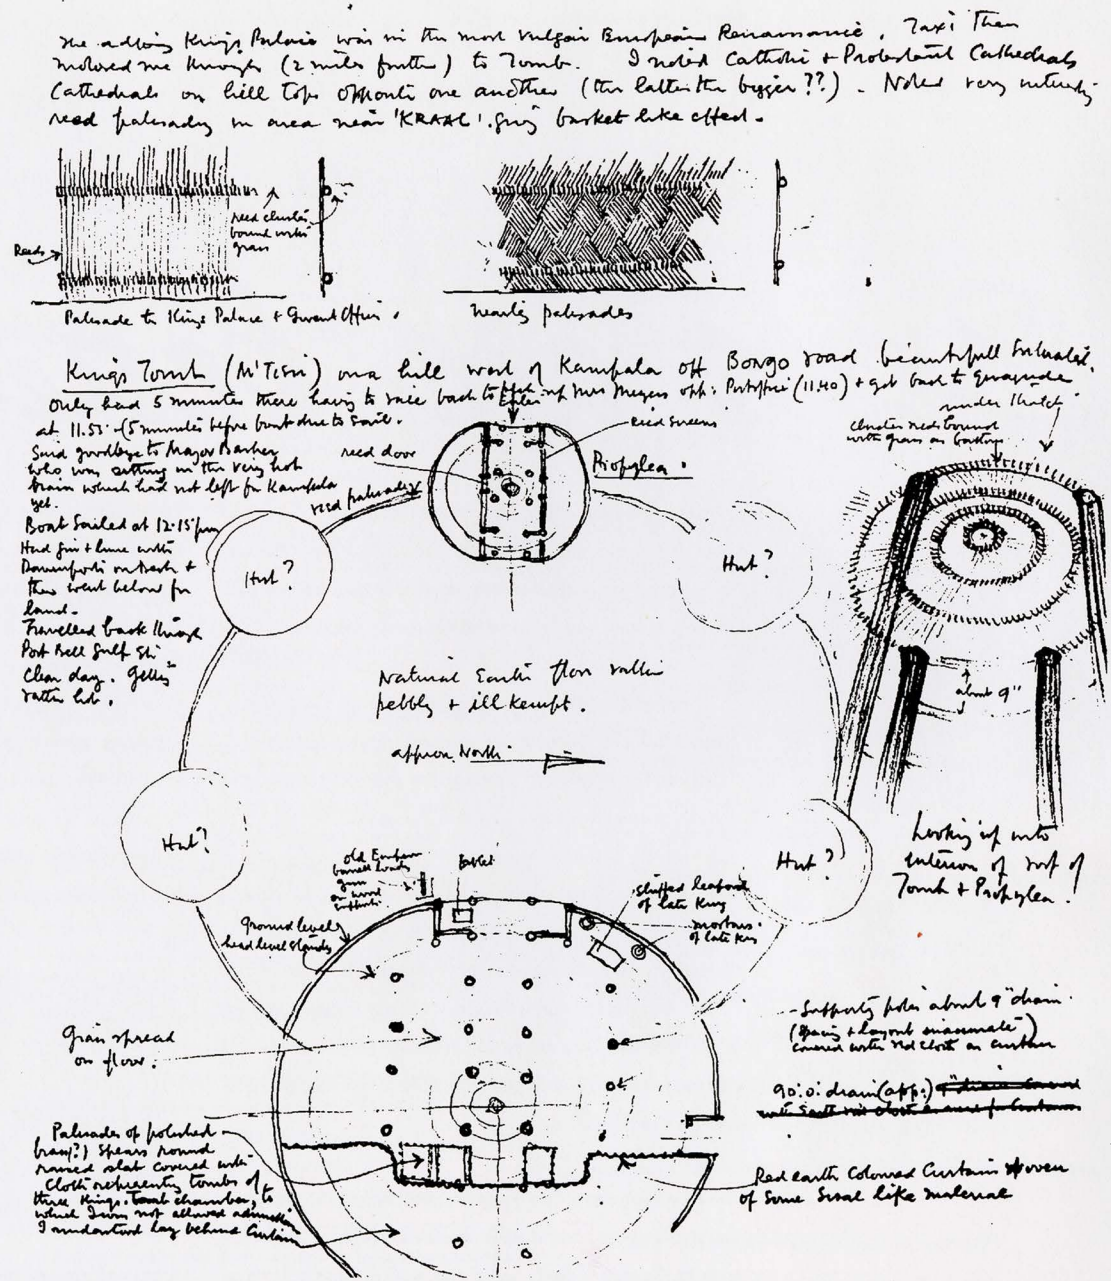 The adjoing Kings Palace was in the most vulgar European Renaissance. Taxi then
motored me through (2 miles further) to Tomb. I noted Catholic + Protestant Cathedrals
Cathedrals on hill tops opposite one another (the latter the bigger??). Noted very
reed palisading in area near 'KRAAL' giving basket like effect.
reed clusters
bound with
grass
Reeds
Palisade to Kings Palace + Offices.
nearby palisades
Kings Tomb (M'TESI) on a hill west of Kampala off Bongo road beautifull Situated.
Only had 5 minutes there having to race back to pick up Mrs Meyers opp: Post office (11.40) + get back to
at 11.55 (5 minutes before boat due to sail.
Said goodbye to Major Barker
who was sitting in the very hot
train which had not left for Kampala
yet.
Boat Sailed at 12.15 pm
Had gin + lime with
on deck +
then went below for
Travelled back through
Port Bell Gulf
Clear day. Getting
rather hot.
Enter
reed screens
reed door
Propylea.
reed palisade
Hut?
Hut?
under thatch
cluster reeds bound
with grass as
about 9"
Natural Earth floor rather
pebbly + ill kempt.
approx North
Hut?
Hut?
Looking up into
interior of roof of
Tomb + Propylea.
old
barrell
gun
on wood
supports
stuffed leopard
of late King
of late King
Ground level
head level
Grass spread
on floor.
- Supports poles about 9" diam.
(spacing + layout inaccurate)
covered with red cloth as curtain
90'.0" diam (app:)
Palisades of polished
(brass?) Spears round
raised slab covered with
Cloth representing tombs of
three Kings. Tomb chamber, to
which I was not allowed admission
I understand lay behind Curtain
Red earth Coloured Curtain woven
of Some Sisal like material